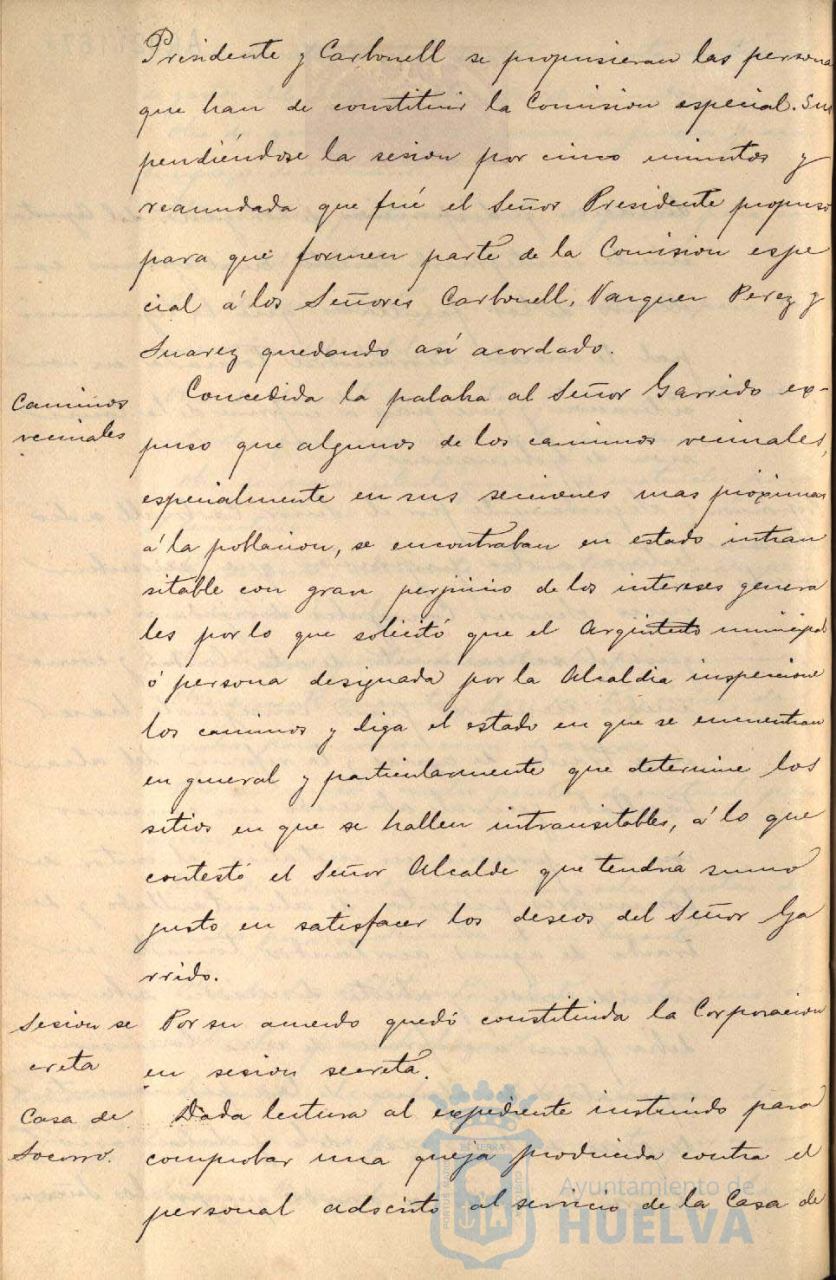 Presidente y Carbonell se propusieran las persona
que han de constituir la Comision especial. Sus
pendiéndose la sesion por cinco minutos y
reanundada que fué el Señor Presidente propuso
para que formen parte de la Comision espe
cial á los Señores Carbonell, Vazquez Perez y
Suarez quedando así acordado.
Caminos
vecinales
Concedida la palaba al Señor Garrido ex-
puso que algunos de los caminos vecinales,
especialmente en sus secciones mas próximas
á la poblacion, se encontraban en estado intran
sitable con gran perjuicio de los intereses genera
les por lo que solicitó que el Arqintecto municipal
ó persona designada por la Alcaldia inspecione
los caminos y diga el estado en que se encuentran
en general y particularmente que determine los
sitios en que se hallen intransitables, á lo que
contestó el Señor Alcalde que tendría sumo
gusto en satisfacer los deseos del Señor Ga
rrido.
Sesion se
creta
Por su acuerdo quedó constituida la Corporacion
en sesion secreta.
Casa de
Socorro.
Dada lectura al expediente instruido para
comprobar una queja producida contra el
personal adscrito al servicio de la Casa de
Ayuntamiento de
HUELVA